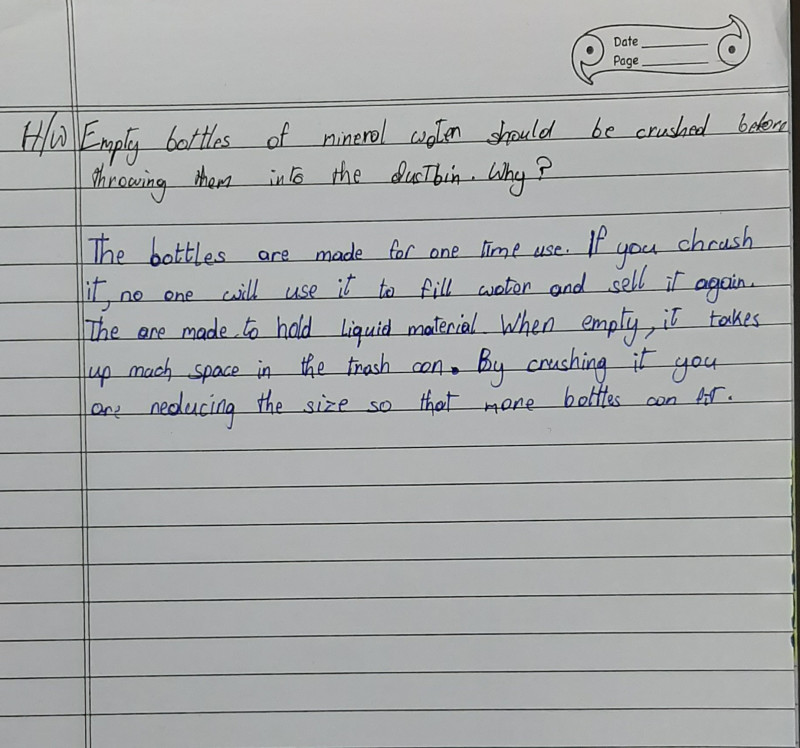 Date
Page
H/W Empty bottles of mineral water should be crushed before
throwing them into the dustbin. Why?
The bottles are made for one time use. If you chrush
it, no one will use it to fill water and sell it again.
The are made to hold liquid material. When empty, it takes
up mach space in the trash can. By crushing it you
are reducing the size so that more bottles can fit.